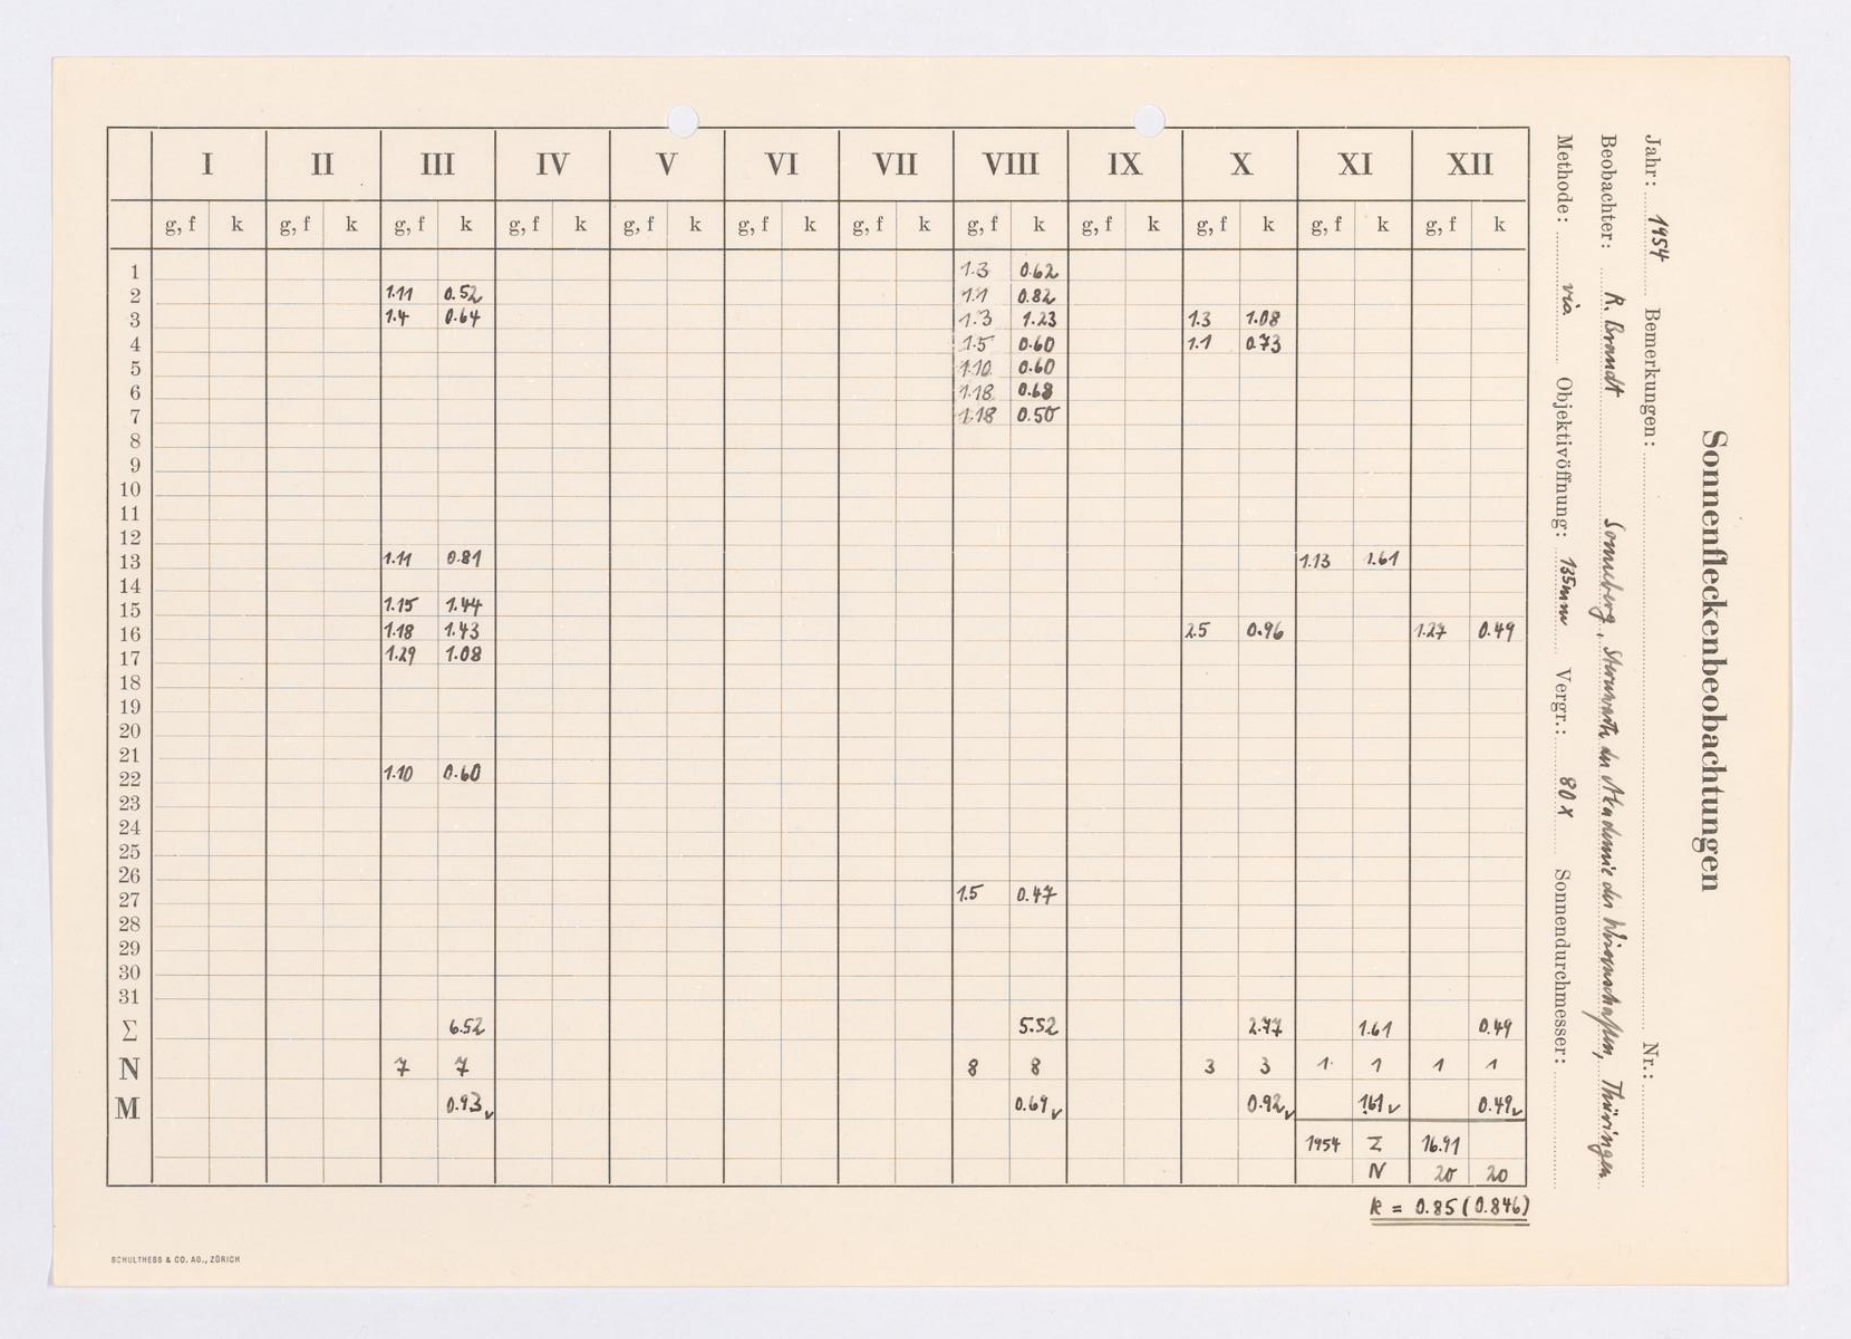 Sonnenfleckenbeobachtungen
Jahr: 1954 Bemerkungen: Nr.:
Beobachter: R. Brandt Sonneberg, Sternwarte der Akademie der Wissenschaften, Thüringen
Methode: vis Objektivöffnung: 135mm Vergr.: 80 x Sonnendurchmesser:
I II III IV V VI VII VIII IX X XI XII
g, f k g, f k g, f k g, f k g, f k g, f k g, f k g, f k g, f k g, f k g, f k g, f k
1 1.3 0.62
2 1.11 0.52 1.1 0.82
3 1.4 0.64 1.3 1.23 1.3 1.08
4 1.5 0.60 1.1 0.73
5 1.10 0.60
6 1.18 0.68
7 1.18 0.50
8
9
10
11
12
13 1.11 0.81 1.13 1.61
14
15 1.15 1.44
16 1.18 1.43 2.5 0.96 1.27 0.49
17 1.29 1.08
18
19
20
21
22 1.10 0.60
23
24
25
26
27 1.5 0.47
28
29
30
31
Σ 6.52 5.52 2.77 1.61 0.49
N 7 7 8 8 3 3 1 1 1 1
M 0.93 v 0.69 v 0.92 v 1.61 v 0.49 v
1954 Σ 16.91
N 20 20
k = 0.85 (0.846)
SCHULTHESS & CO. AG., ZÜRICH